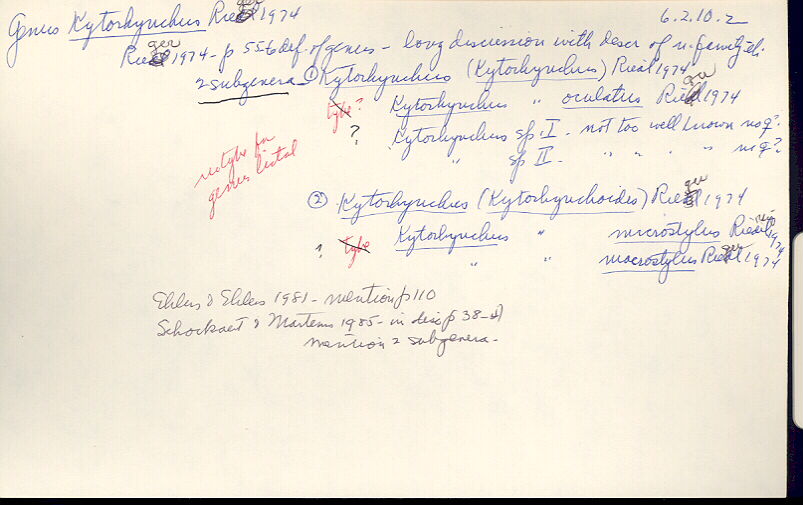 Genus Kytorhynchus Rieger 1974
6.2.10.2
Rieger 1974 - p 556 def. of genus - long discussion with descr of n. genitzeli.
2 subgenera ① Kytorhynchus (Kytorhynchus) Rieger 1974
type? Kytorhynchus " oculatus Rieger 1974
? Kytorhynchus sp. I - not too well known no ♀?
" sp II - " " " " no ♀?
no type for genus listed
② Kytorhynchus (Kytorhynchoides) Rieger 1974
? type Kytorhynchus " microstylus Rieger 1974
" " macrostylus Rieger 1974
Ehlers & Ehlers 1981 - mention p 110
Schockaert & Martens 1985 - in disc p 38 -
mention 2 subgenera -